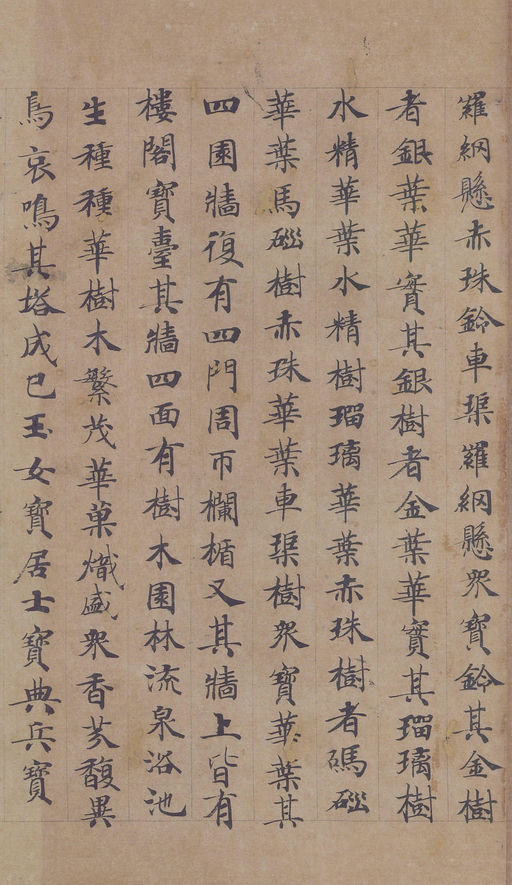 羅網懸赤珠鈴車璖羅網懸眾寶鈴其金樹
者銀葉華實其銀樹者金葉華寶其瑠璃樹
水精華葉水精樹瑠璃華葉赤珠樹者碼碯
華葉馬碯樹赤珠華葉車璖樹眾寶華葉其
四園牆復有四門周帀欄楯又其牆上皆有
樓閣寶臺其牆四面有樹木園林流泉浴池
生種種華樹木繁茂華菓熾盛眾香芬馥異
鳥哀鳴其塔成已玉女寶居士寶典兵寶